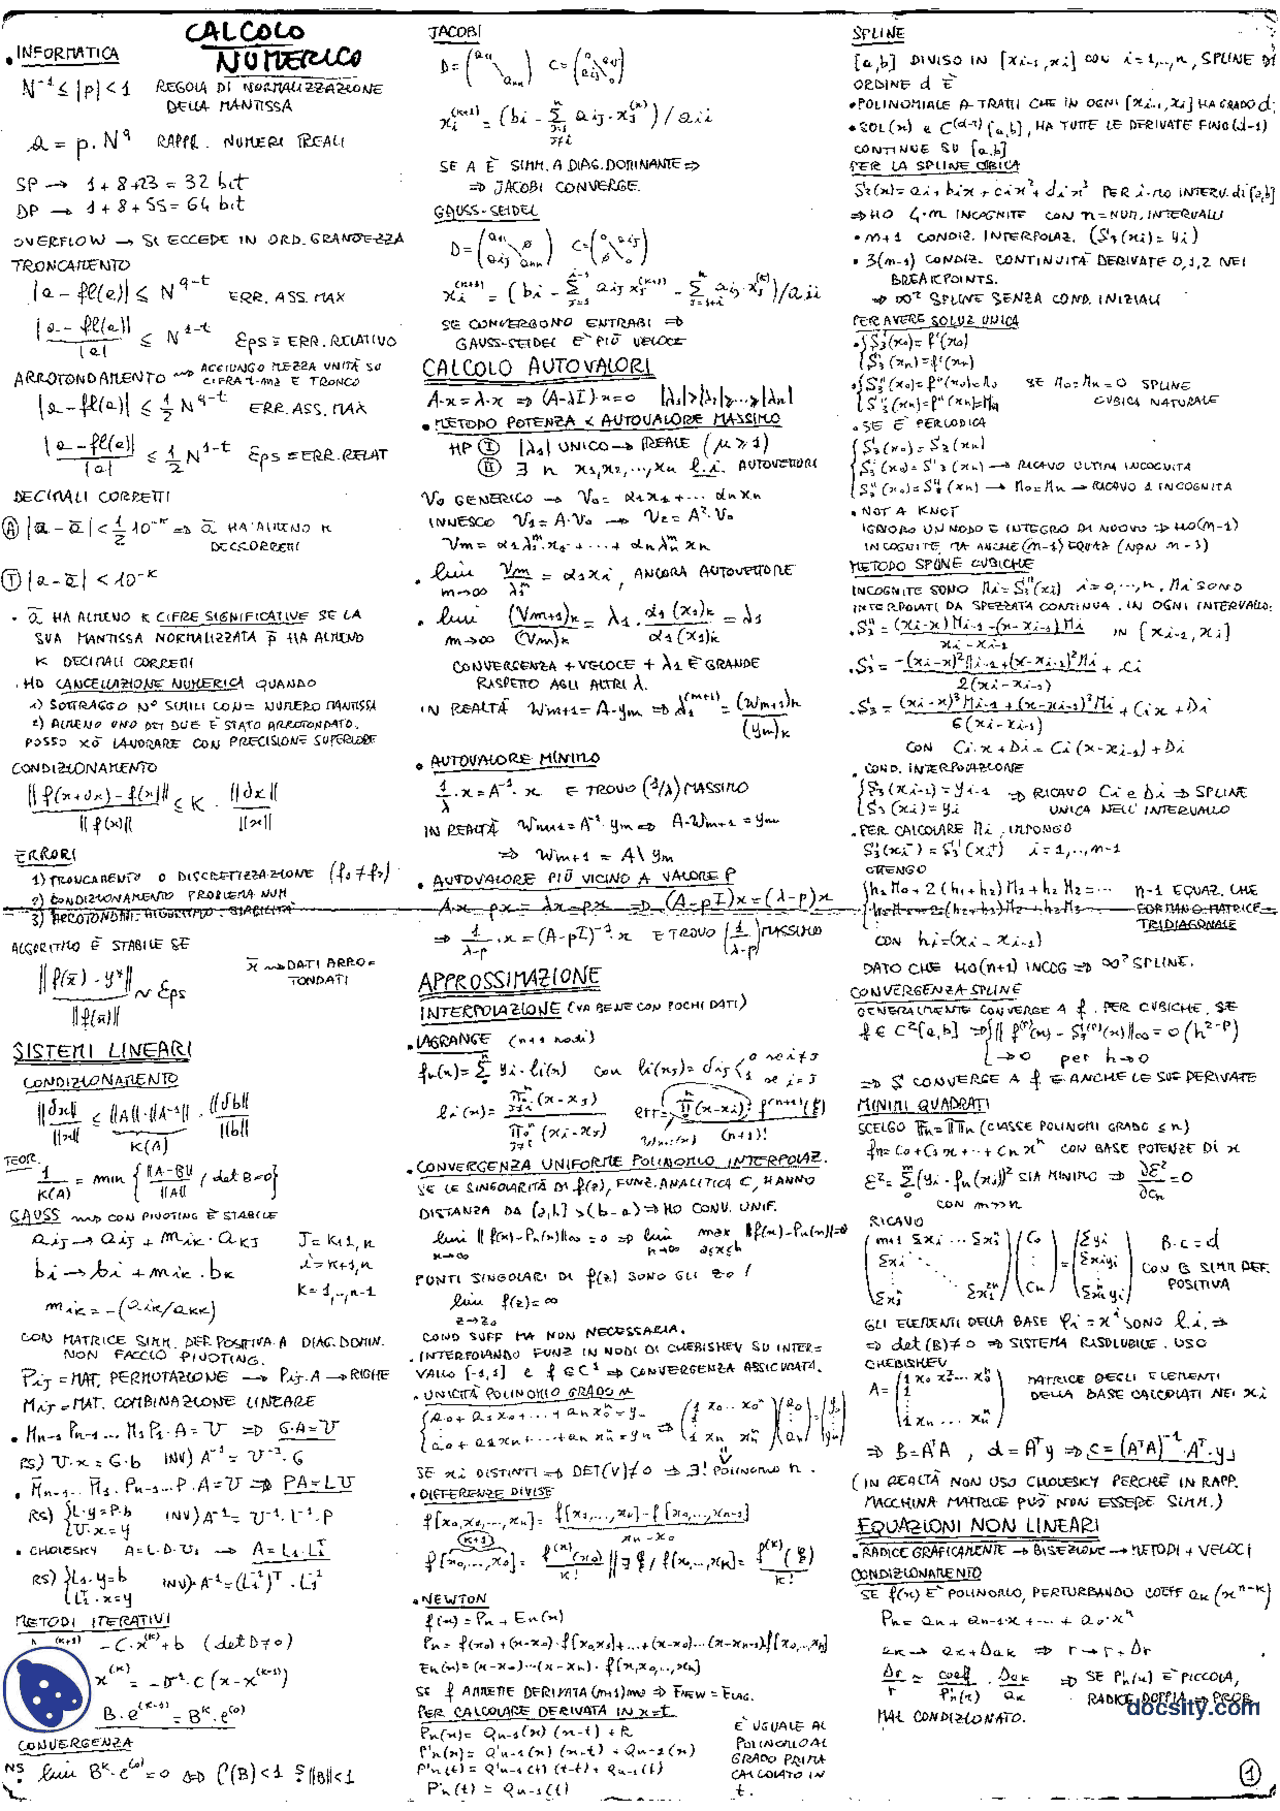 CALCOLO
NUMERICO
• INFORMATICA
N⁻¹ ≤ |p| < 1 REGOLA DI NORMALIZZAZIONE
DELLA MANTISSA
a = p · N^q RAPPR. NUMERI REALI
SP → 1 + 8 + 23 = 32 bit
DP → 1 + 8 + 55 = 64 bit
OVERFLOW → SI ECCEDE IN ORD. GRANDEZZA
TRONCAMENTO
|a - fl(a)| ≤ N^(q-t) ERR. ASS. MAX
|a - fl(a)| / |a| ≤ N^(1-t) Eps = ERR. RELATIVO
ARROTONDAMENTO → AGGIUNGO MEZZA UNITÀ SU
CIFRA t-ma E TRONCO
|a - fl(a)| ≤ 1/2 N^(q-t) ERR. ASS. MAX
|a - fl(a)| / |a| ≤ 1/2 N^(1-t) Eps = ERR. RELAT
DECIMALI CORRETTI
Ⓐ |a - ā| < 1/2 10^(-K) ⇒ ā HA ALMENO K
DEC. CORRETTI
Ⓣ |a - ā| < 10^(-K)
• ā HA ALMENO K CIFRE SIGNIFICATIVE SE LA
SUA MANTISSA NORMALIZZATA p̄ HA ALMENO
K DECIMALI CORRETTI
• HO CANCELLAZIONE NUMERICA QUANDO
1) SOTTRAGGO N° SIMILI CON = NUMERO MANTISSA
2) ALMENO UNO DEI DUE È STATO ARROTONDATO.
POSSO XÒ LAVORARE CON PRECISIONE SUPERIORE
CONDIZIONAMENTO
||f(x+δx) - f(x)|| / ||f(x)|| ≤ K · ||δx|| / ||x||
ERRORI
1) TRONCAMENTO O DISCRETIZZAZIONE
2) CONDIZIONAMENTO PROBLEMA NUM
3) ARROTONDAM. ALGORITMO - STABILITÀ
ALGORITMO È STABILE SE
||f(x̄) - y*|| / ||f(x̄)|| ~ Eps x̄ → DATI ARRO=
TONDATI
SISTEMI LINEARI
CONDIZIONAMENTO
||δx|| / ||x|| ≤ ||A|| · ||A⁻¹|| · ||δb|| / ||b||
K(A)
TEOR.
1/K(A) = min { ||A-B|| / ||A|| / det B=0 }
GAUSS → CON PIVOTING È STABILE
aij → aij + mik · akj J = K+1, n
bi → bi + mik · bk i = K+1, n
mik = -(aik/akk) K = 1,..,n-1
CON MATRICE SIMM. DEF. POSITIVA A DIAG. DOMIN.
NON FACCIO PIVOTING.
Pij = MAT. PERMUTAZIONE → Pij · A → RIGHE
Mij = MAT. COMBINAZIONE LINEARE
• Mn-1 Pn-1 ... M1 P1 · A = U ⇒ G·A = U
RS) U·x = G·b INV) A⁻¹ = U⁻¹ · G
• M̄n-1 ... M̄1 · Pn-1 ... P · A = U ⇒ PA = LU
RS) { L·y = P·b INV) A⁻¹ = U⁻¹ · L⁻¹ · P
U·x = y
• CHOLESKY A = L·D·U1 → A = L1 · L1ᵀ
RS) { L1·y = b INV) A⁻¹ = (L1⁻¹)ᵀ · L1⁻¹
L1ᵀ·x = y
METODI ITERATIVI
- C·x^(K) + b (det D≠0)
x^(K) = -D⁻¹ C (x - x^(K-1))
B·e^(K-1) = B^K · e^(0)
CONVERGENZA
NS lim B^K · e^(0) = 0 ⇔ ρ(B) < 1 S ||B|| < 1
JACOBI
D = (a11 ann) C = (0 aij aij 0)
xi^(K+1) = (bi - Σ aij · xj^(K)) / aii
SE A È SIMM. A DIAG. DOMINANTE ⇒
⇒ JACOBI CONVERGE.
GAUSS-SEIDEL
D = (a11 ø aij ann) C = (0 aij ø 0)
xi^(K+1) = (bi - Σ aij xj^(K+1) - Σ aij xj^(K)) / aii
SE CONVERGONO ENTRAMBI ⇒
GAUSS-SEIDEL È PIÙ VELOCE
CALCOLO AUTOVALORI
A·x = λ·x ⇒ (A-λI)·x = 0 |λ1|>|λ2|>...>|λn|
• METODO POTENZA < AUTOVALORE MASSIMO
HP Ⓘ |λ1| UNICO → REALE (μ ≥ 1)
Ⓘ Ⓘ ∃ n x1, x2, ..., xn l.i. AUTOVETTORI
V0 GENERICO → V0 = α1x1 + ... αnxn
INNESCO V1 = A·V0 → V2 = A²·V0
Vm = α1λ1^m·x1 + ... + αnλn^m xn
• lim m→∞ Vm/λ1^m = α1x1, ANCORA AUTOVETTORE
• lim m→∞ (Vm+1)k / (Vm)k = λ1 · α1(x1)k / α1(x1)k = λ1
CONVERGENZA + VELOCE + λ1 È GRANDE
RISPETTO AGLI ALTRI λ.
IN REALTÀ Wm+1 = A·ym ⇒ λ1^(m+1) = (Wm+1)k / (ym)k
• AUTOVALORE MINIMO
1/λ · x = A⁻¹ · x E TROVO (1/λ) MASSIMO
IN REALTÀ Wm+1 = A⁻¹·ym ⇒ A·Wm+1 = ym
⇒ Wm+1 = A\ym
• AUTOVALORE PIÙ VICINO A VALORE P
A·x - px = λx - px ⇒ (A-pI)x = (λ-p)x
⇒ 1/(λ-p) · x = (A-pI)⁻¹·x E TROVO (1/(λ-p)) MASSIMO
APPROSSIMAZIONE
INTERPOLAZIONE (VA BENE CON POCHI DATI)
• LAGRANGE (n+1 nodi)
fn(x) = Σ yi·li(x) con li(xj) = δij < 0 se i≠j
1 se i=j
li(x) = Π(x-xj) / Π(xi-xj) err = Π(x-xi) · f^(n+1)(ξ) / (n+1)!
• CONVERGENZA UNIFORME POLINOMIO INTERPOLAZ.
SE LE SINGOLARITÀ DI f(z), FUNZ. ANALITICA C, HANNO
DISTANZA DA [a,b] > (b-a) ⇒ HO CONV. UNIF.
lim n→∞ ||f(x)-Pn(x)||∞ = 0 ⇒ lim n→∞ max a≤x≤b |f(x)-Pn(x)| = 0
PUNTI SINGOLARI DI f(z) SONO GLI z0 /
lim z→z0 f(z) = ∞
COND SUFF MA NON NECESSARIA.
• INTERPOLANDO FUNZ IN NODI DI CHEBISHEV SU INTER=
VALLO [-1,1] e f ∈ C¹ ⇒ CONVERGENZA ASSICURATA.
• UNICITÀ POLINOMIO GRADO n
{ a0 + a1x0 + ... + an x0^n = y0 ⇒ (1 x0 ... x0^n 1 xn xn^n)(a0 an) = (y0 yn)
a0 + a1xn + ... + an xn^n = yn
SE xi DISTINTI ⇒ DET(V)≠0 ⇒ ∃! POLINOMIO n.
• DIFFERENZE DIVISE
f[x0,x1,...,xn] = f[x1,...,xn] - f[x0,...,xn-1] / xn - x0
(k+1)
f[x0,...,x0] = f^(k)(x0) / k! || ∃ ξ / f[x0,..,xk] = f^(k)(ξ) / k!
• NEWTON
f(x) = Pn + En(x)
Pn = f(x0) + (x-x0)·f[x0,x1] + ... + (x-x0)...(x-xn-1)·f[x0,..,xn]
En(x) = (x-x0)...(x-xn) · f[x,x0,..,xn]
SE f AMMETTE DERIVATA (n+1)ma ⇒ ENEW = ELAG.
PER CALCOLARE DERIVATA IN x=t
Pn(x) = Qn-1(x) (x-t) + R
P'n(x) = Q'n-1(x) (x-t) + Qn-1(x)
P'n(t) = Q'n-1(t) (t-t) + Qn-1(t)
P'n(t) = Qn-1(t)
È UGUALE AL
POLINOMIO AL
GRADO PRIMA
CALCOLATO IN
t.
SPLINE
[a,b] DIVISO IN [xi-1, xi] CON i=1,..,n, SPLINE DI
ORDINE d È
• POLINOMIALE A TRATTI CHE IN OGNI [xi-1, xi] HA GRADO d
• Sd(x) e C^(d-1) [a,b], HA TUTTE LE DERIVATE FINO (d-1)
CONTINUE SU [a,b]
PER LA SPLINE CUBICA
S3(x) = ai + bix + cix² + dix³ PER i-mo INTERV. di [a,b]
⇒ HO 4·n INCOGNITE CON n = NUM. INTERVALLI
• n+1 CONDIZ. INTERPOLAZ. (S3(xi) = yi)
• 3(n-1) CONDIZ. CONTINUITÀ DERIVATE 0,1,2 NEI
BREAKPOINTS.
⇒ ∞² SPLINE SENZA COND. INIZIALI
PER AVERE SOLUZ UNICA
• { S'3(x0) = f'(x0)
S'3(xn) = f'(xn)
• { S''3(x0) = f''(x0) = M0 SE M0 = Mn = 0 SPLINE
S''3(xn) = f''(xn) = Mn CUBICA NATURALE
• SE È PERIODICA
{ S3(x0) = S3(xn)
S'3(x0) = S'3(xn) → RICAVO ULTIMA INCOGNITA
S''3(x0) = S''3(xn) → M0 = Mn → RICAVO 1 INCOGNITA
• NOT A KNOT
IGNORO UN NODO E INTEGRO DI NUOVO ⇒ HO (n-1)
INCOGNITE, MA ANCHE (n-1) EQUAZ (NON n-3)
METODO SPLINE CUBICHE
INCOGNITE SONO Mi = S''3(xi) i=0,..,n, Mi SONO
INTERPOLATI DA SPEZZATA CONTINUA. IN OGNI INTERVALLO:
• S''3 = (xi-x)Mi-1 + (x-xi-1)Mi / xi-xi-1 IN [xi-1, xi]
• S'3 = -(xi-x)²Mi-1 + (x-xi-1)²Mi / 2(xi-xi-1) + Ci
• S3 = (xi-x)³Mi-1 + (x-xi-1)³Mi / 6(xi-xi-1) + Cix + Di
CON Ci·x + Di = Ci(x-xi-1) + Di
• COND. INTERPOLAZIONE
{ S3(xi-1) = yi-1 ⇒ RICAVO Ci e Di ⇒ SPLINE
S3(xi) = yi UNICA NELL'INTERVALLO
• PER CALCOLARE Mi, IMPONGO
S'3(xi⁻) = S'3(xi⁺) i=1,..,n-1
OTTENGO
{ h1M0 + 2(h1+h2)M1 + h2M2 = ... n-1 EQUAZ. CHE
FORMANO MATRICE
TRIDIAGONALE
CON hi = (xi - xi-1)
DATO CHE HO (n+1) INCOG ⇒ ∞² SPLINE.
CONVERGENZA SPLINE
GENERALMENTE CONVERGE A f. PER CUBICHE, SE
f ∈ C²[a,b] ⇒ { || f^(p)(x) - S3^(p)(x) ||∞ = O(h^(2-p))
→ 0 per h→0
⇒ S CONVERGE A f E ANCHE LE SUE DERIVATE
MINIMI QUADRATI
SCELGO (CLASSE POLINOMI GRADO ≤ n)
fn = C0 + C1x + ... + Cn x^n CON BASE POTENZE DI x
ε² = Σ(yi - fn(xi))² SIA MINIMO ⇒ ∂ε²/∂cn = 0
CON m>>n
RICAVO
(m+1 Σxi ... Σxi^n Σxi Σxi^n Σxi^2n)(C0 Cn) = (Σyi Σxiyi Σxi^n yi) B·c = d
CON B SIMM DEF.
POSITIVA
GLI ELEMENTI DELLA BASE φi = x^i SONO l.i. ⇒
⇒ det(B)≠0 ⇒ SISTEMA RISOLUBILE. USO
CHEBISHEV
A = (1 x0 x0² ... x0^n 1 1 xn ... xn^n) MATRICE DEGLI ELEMENTI
DELLA BASE CALCOLATI NEI xi
⇒ B = AᵀA, d = Aᵀy ⇒ c = (AᵀA)⁻¹ · Aᵀ·y
(IN REALTÀ NON USO CHOLESKY PERCHÉ IN RAPP.
MACCHINA MATRICE PUÒ NON ESSERE SIMM.)
EQUAZIONI NON LINEARI
• RADICE GRAFICAMENTE → BISEZIONE → METODI + VELOCI
CONDIZIONAMENTO
SE f(x) È POLINOMIO, PERTURBANDO COEFF ak (x^(n-k))
Pn = an + an-1x + ... + a0·x^n
ak → ak + Δak ⇒ r → r + Δr
Δr/r ≃ coeff/P'n(r) · Δak/ak ⇒ SE P'n(r) È PICCOLA,
RADICE DOPPIA ⇒ PROB
MAL CONDIZIONATO.
docsity.com
1